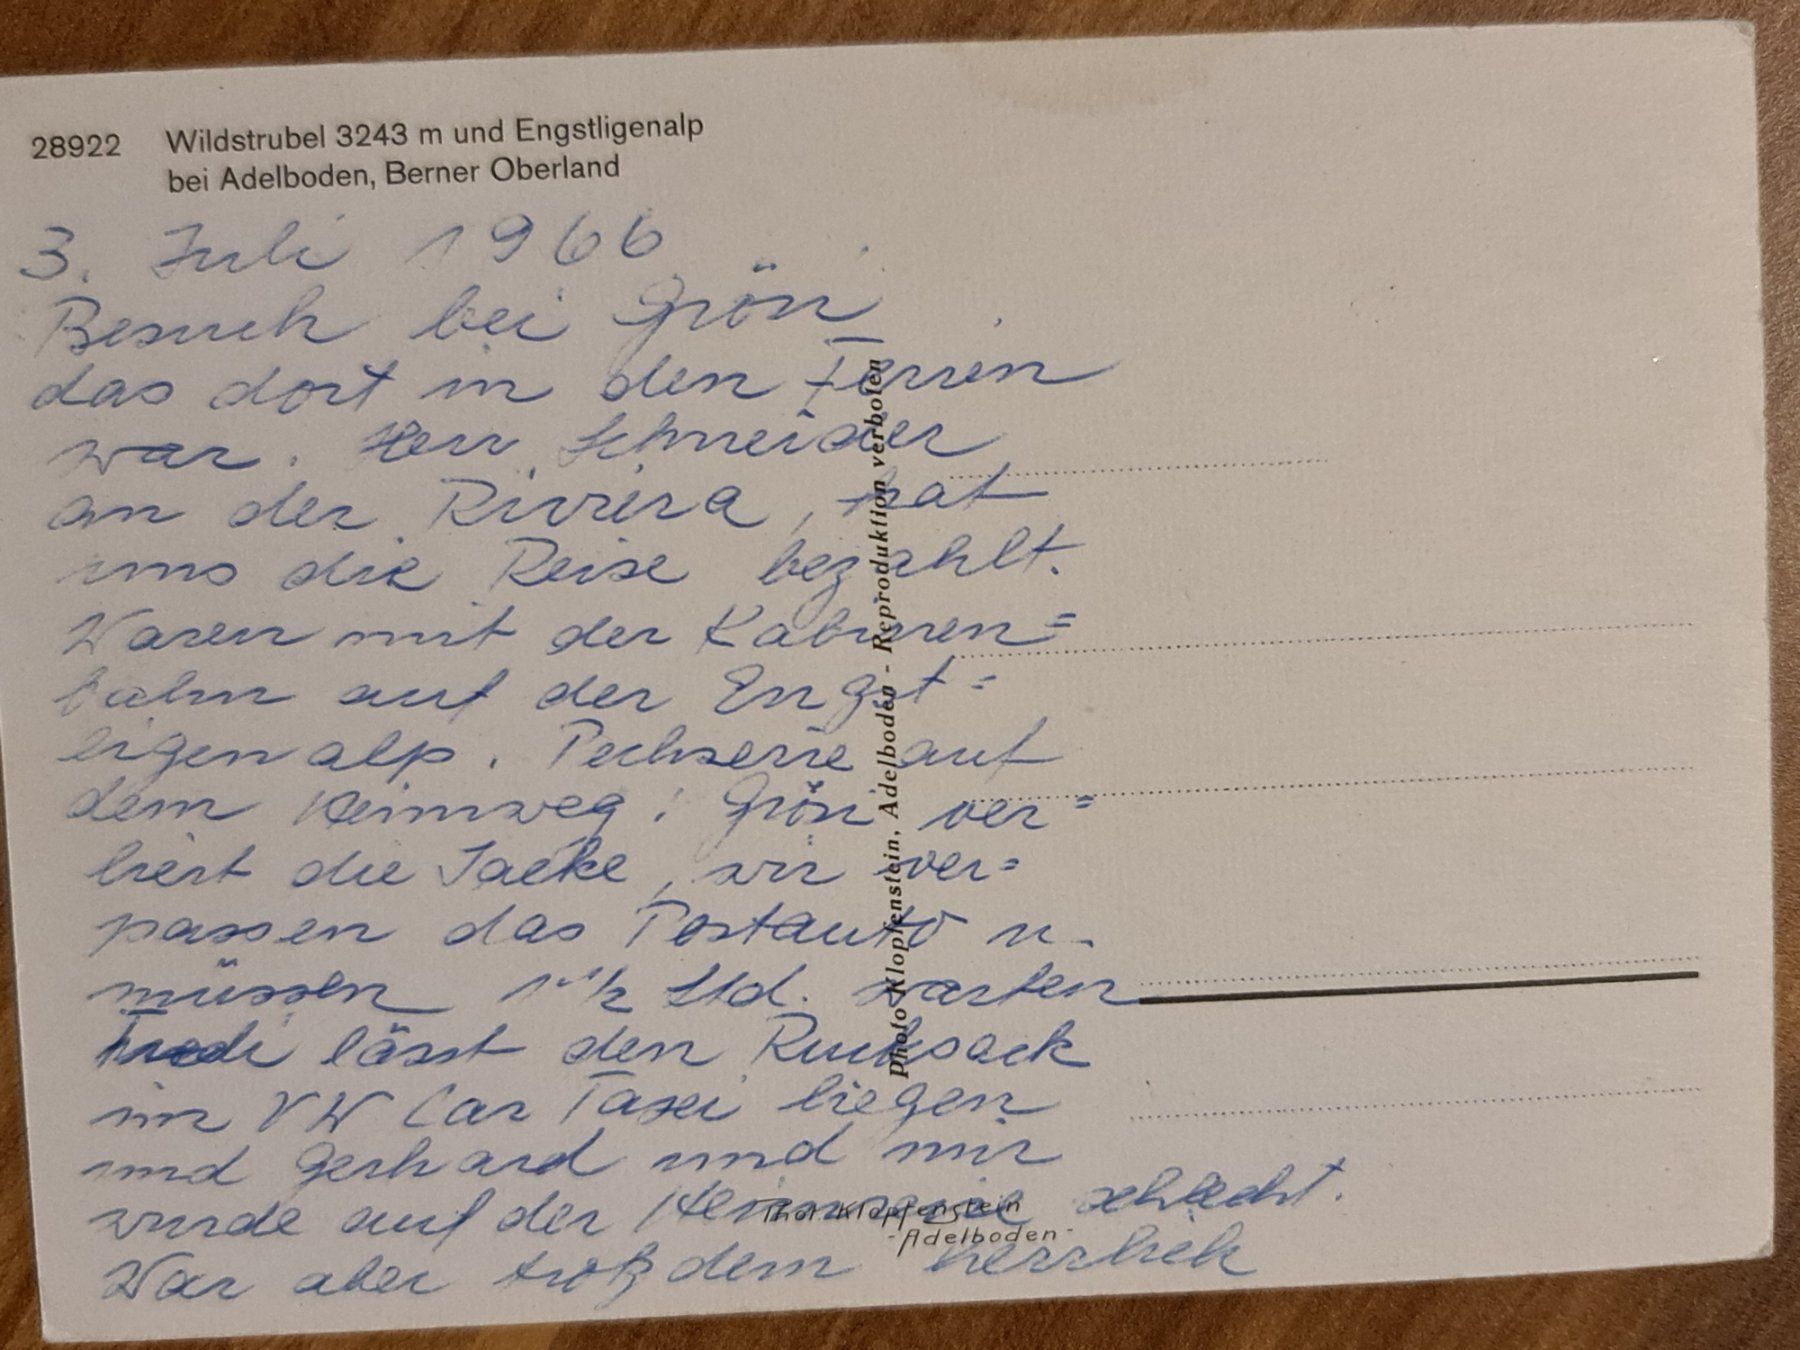 28922 Wildstrubel 3243 m und Engstligenalp
bei Adelboden, Berner Oberland
3. Juli 1966
Besuch bei Gröni
das dort in den Ferien
war. Herr Schneider
an der Riviera, hat
uns die Reise bezahlt.
Waren mit der Kabinen=
bahn auf der Engst=
ligenalp. Pechserie auf
dem Heimweg: Gröni ver=
liert die Jacke, wir ver=
passen das Postauto u.
müssen 1 1/2 Std. warten
Fredi lässt den Rucksack
im VW Car Taxi liegen
und Gerhard und mir
wurde auf der Heimreise schlecht.
War aber trotzdem herrlich
Photo Klopfenstein, Adelboden - Reproduktion verboten
Phot. Klopfenstein
-Adelboden-